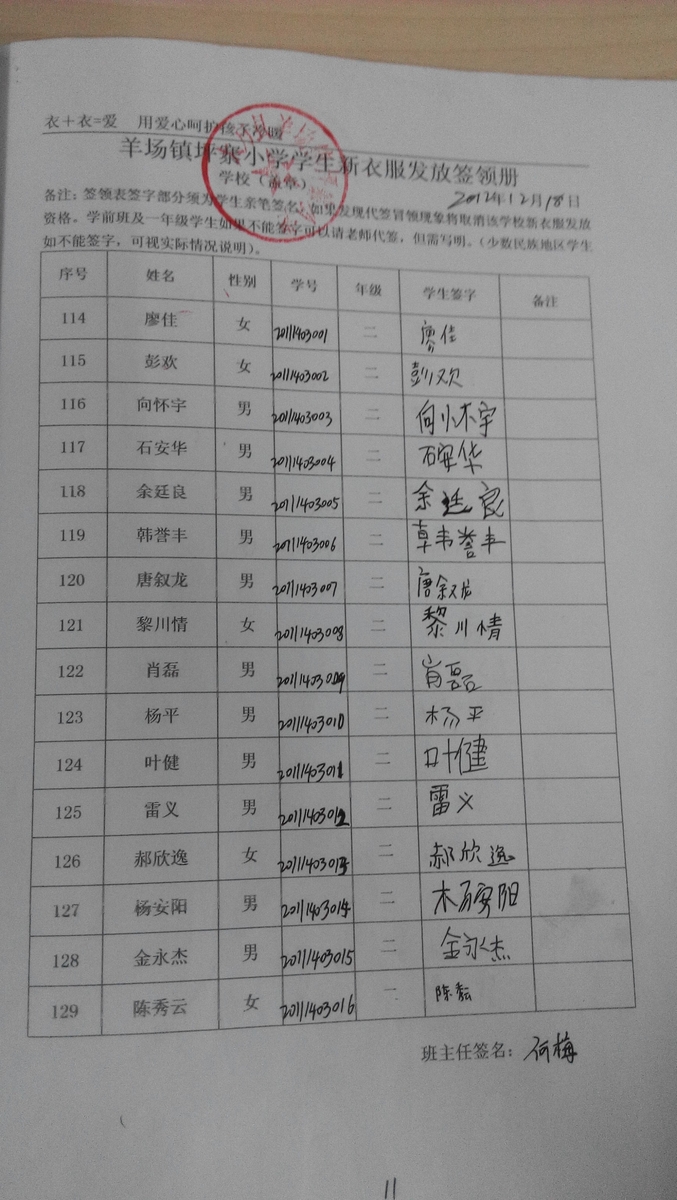 衣+衣=爱 用爱心呵护孩子冷暖
羊场镇坪寨小学学生新衣服发放签领册
学校（盖章） 2012年12月18日
备注：签领表签字部分须为学生亲笔签名，如果发现代签冒领现象将取消该学校新衣服发放
资格。学前班及一年级学生如果不能签字可以请老师代签，但需写明。（少数民族地区学生
如不能签字，可视实际情况说明）。
序号 姓名 性别 学号 年级 学生签字 备注
114 廖佳 女 2011403001 二 廖佳
115 彭欢 女 2011403002 二 彭欢
116 向怀宇 男 2011403003 二 向怀宇
117 石安华 男 2011403004 二 石安华
118 余廷良 男 2011403005 二 余廷良
119 韩誉丰 男 2011403006 二 韩誉丰
120 唐叙龙 男 2011403007 二 唐叙龙
121 黎川情 女 2011403008 二 黎川情
122 肖磊 男 2011403009 二 肖磊
123 杨平 男 2011403010 二 杨平
124 叶健 男 2011403011 二 叶健
125 雷义 男 2011403012 二 雷义
126 郝欣逸 女 201140301 二 郝欣逸
127 杨安阳 男 2011403014 二 杨安阳
128 金永杰 男 2011403015 二 金永杰
129 陈秀云 女 2011403016 一 陈
班主任签名：何梅
11